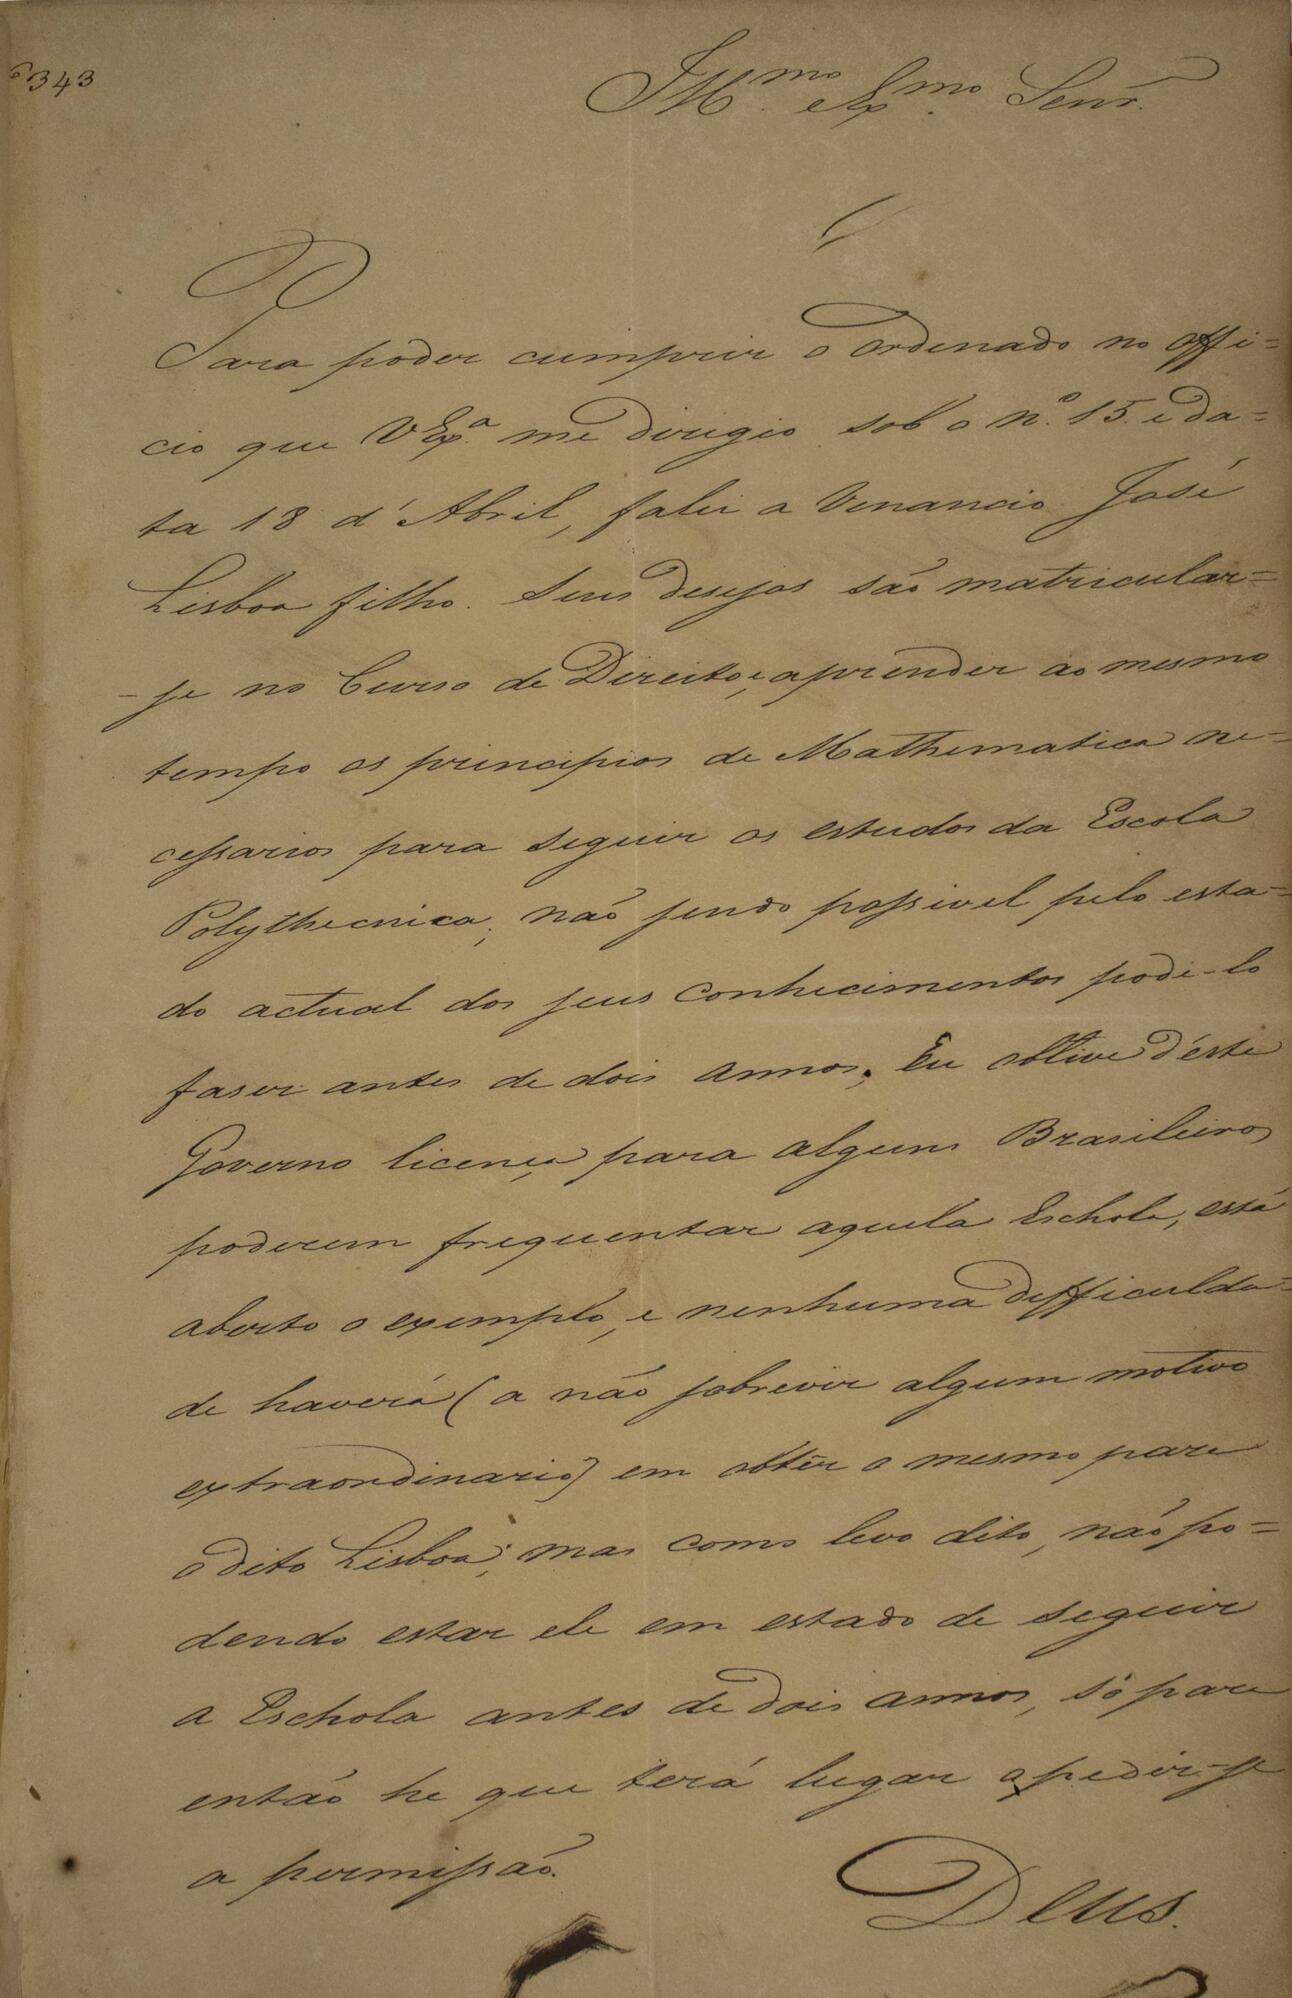 6343
Illmo. e Exmo. Senr.
Para poder cumprir o ordenado no offi=
cio que VExa. me dirigio sob o nº. 15. e da=
ta 18 d'Abril, falei a Venancio José
Lisboa filho. Seus desejos são matricular=
-se no Curso de Direito, e aprender ao mesmo
tempo os principios de Mathematica ne=
cessarios para seguir os estudos da Escola
Polythecnica; não sendo possivel pelo esta=
do actual dos seus conhecimentos pode-lo
faser antes de dois annos. Eu obtive d'éste
Governo licença para alguns Brasileiros
poderem frequentar aquela Eschola, está
aberto o exemplo, e nenhuma difficulda=
de haverá (a não sobrevir algum motivo
extraordinario) em obtêr o mesmo para
o dito Lisboa; mas como levo dito, não po=
dendo estar ele em estado de seguir
a Eschola antes de dois annos, só para
então he que terá lugar o pedir-se
a permissão.
Deus.